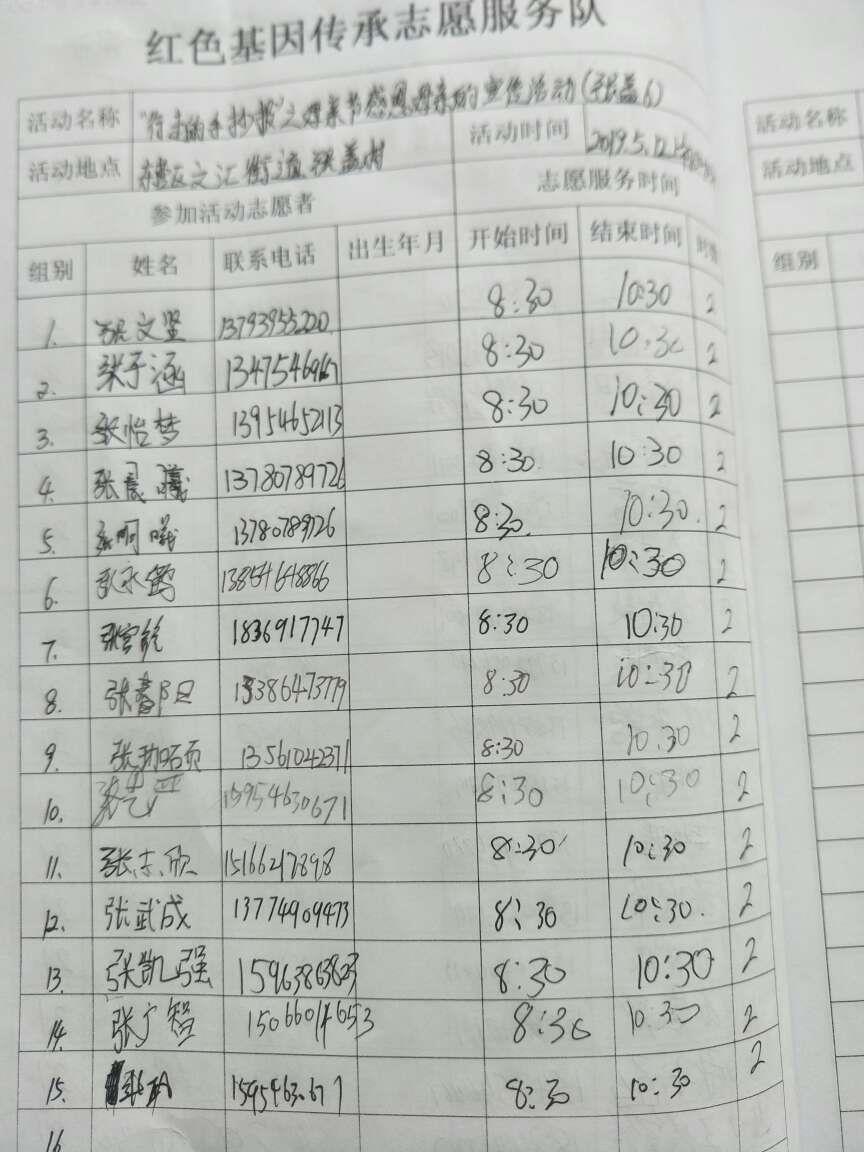 红色基因传承志愿服务队
活动名称 "行走的手抄报"之母亲节感恩母亲的宣传活动(张盖6)
活动地点 文汇街道张盖村 活动时间 2019.5.12上午
参加活动志愿者 志愿服务时间
组别 姓名 联系电话 出生年月 开始时间 结束时间 时数
1. 张文坚 13793955220 8:30 10:30 2
2. 张子涵 8:30 10:30 2
3. 张怡梦 13954652113 8:30 10:30 2
4. 张晨曦 13780789726 8:30 10:30 2
5. 13780789726 8:30 10:30 2
6. 13854648866 8:30 10:30 2
7. 1836917747 8:30 10:30 2
8. 张春阳 8:30 10:30 2
9. 13561042371 8:30 10:30 2
10. 15954630671 8:30 10:30 2
11. 张志欣 15166217898 8:30 10:30 2
12. 张武成 13774909473 8:30 10:30 2
13. 张凯强 15963863823 8:30 10:30 2
14. 张广智 15066014653 8:30 10:30 2
15. 8:30 10:30 2
16
活动名称
活动地点
组别